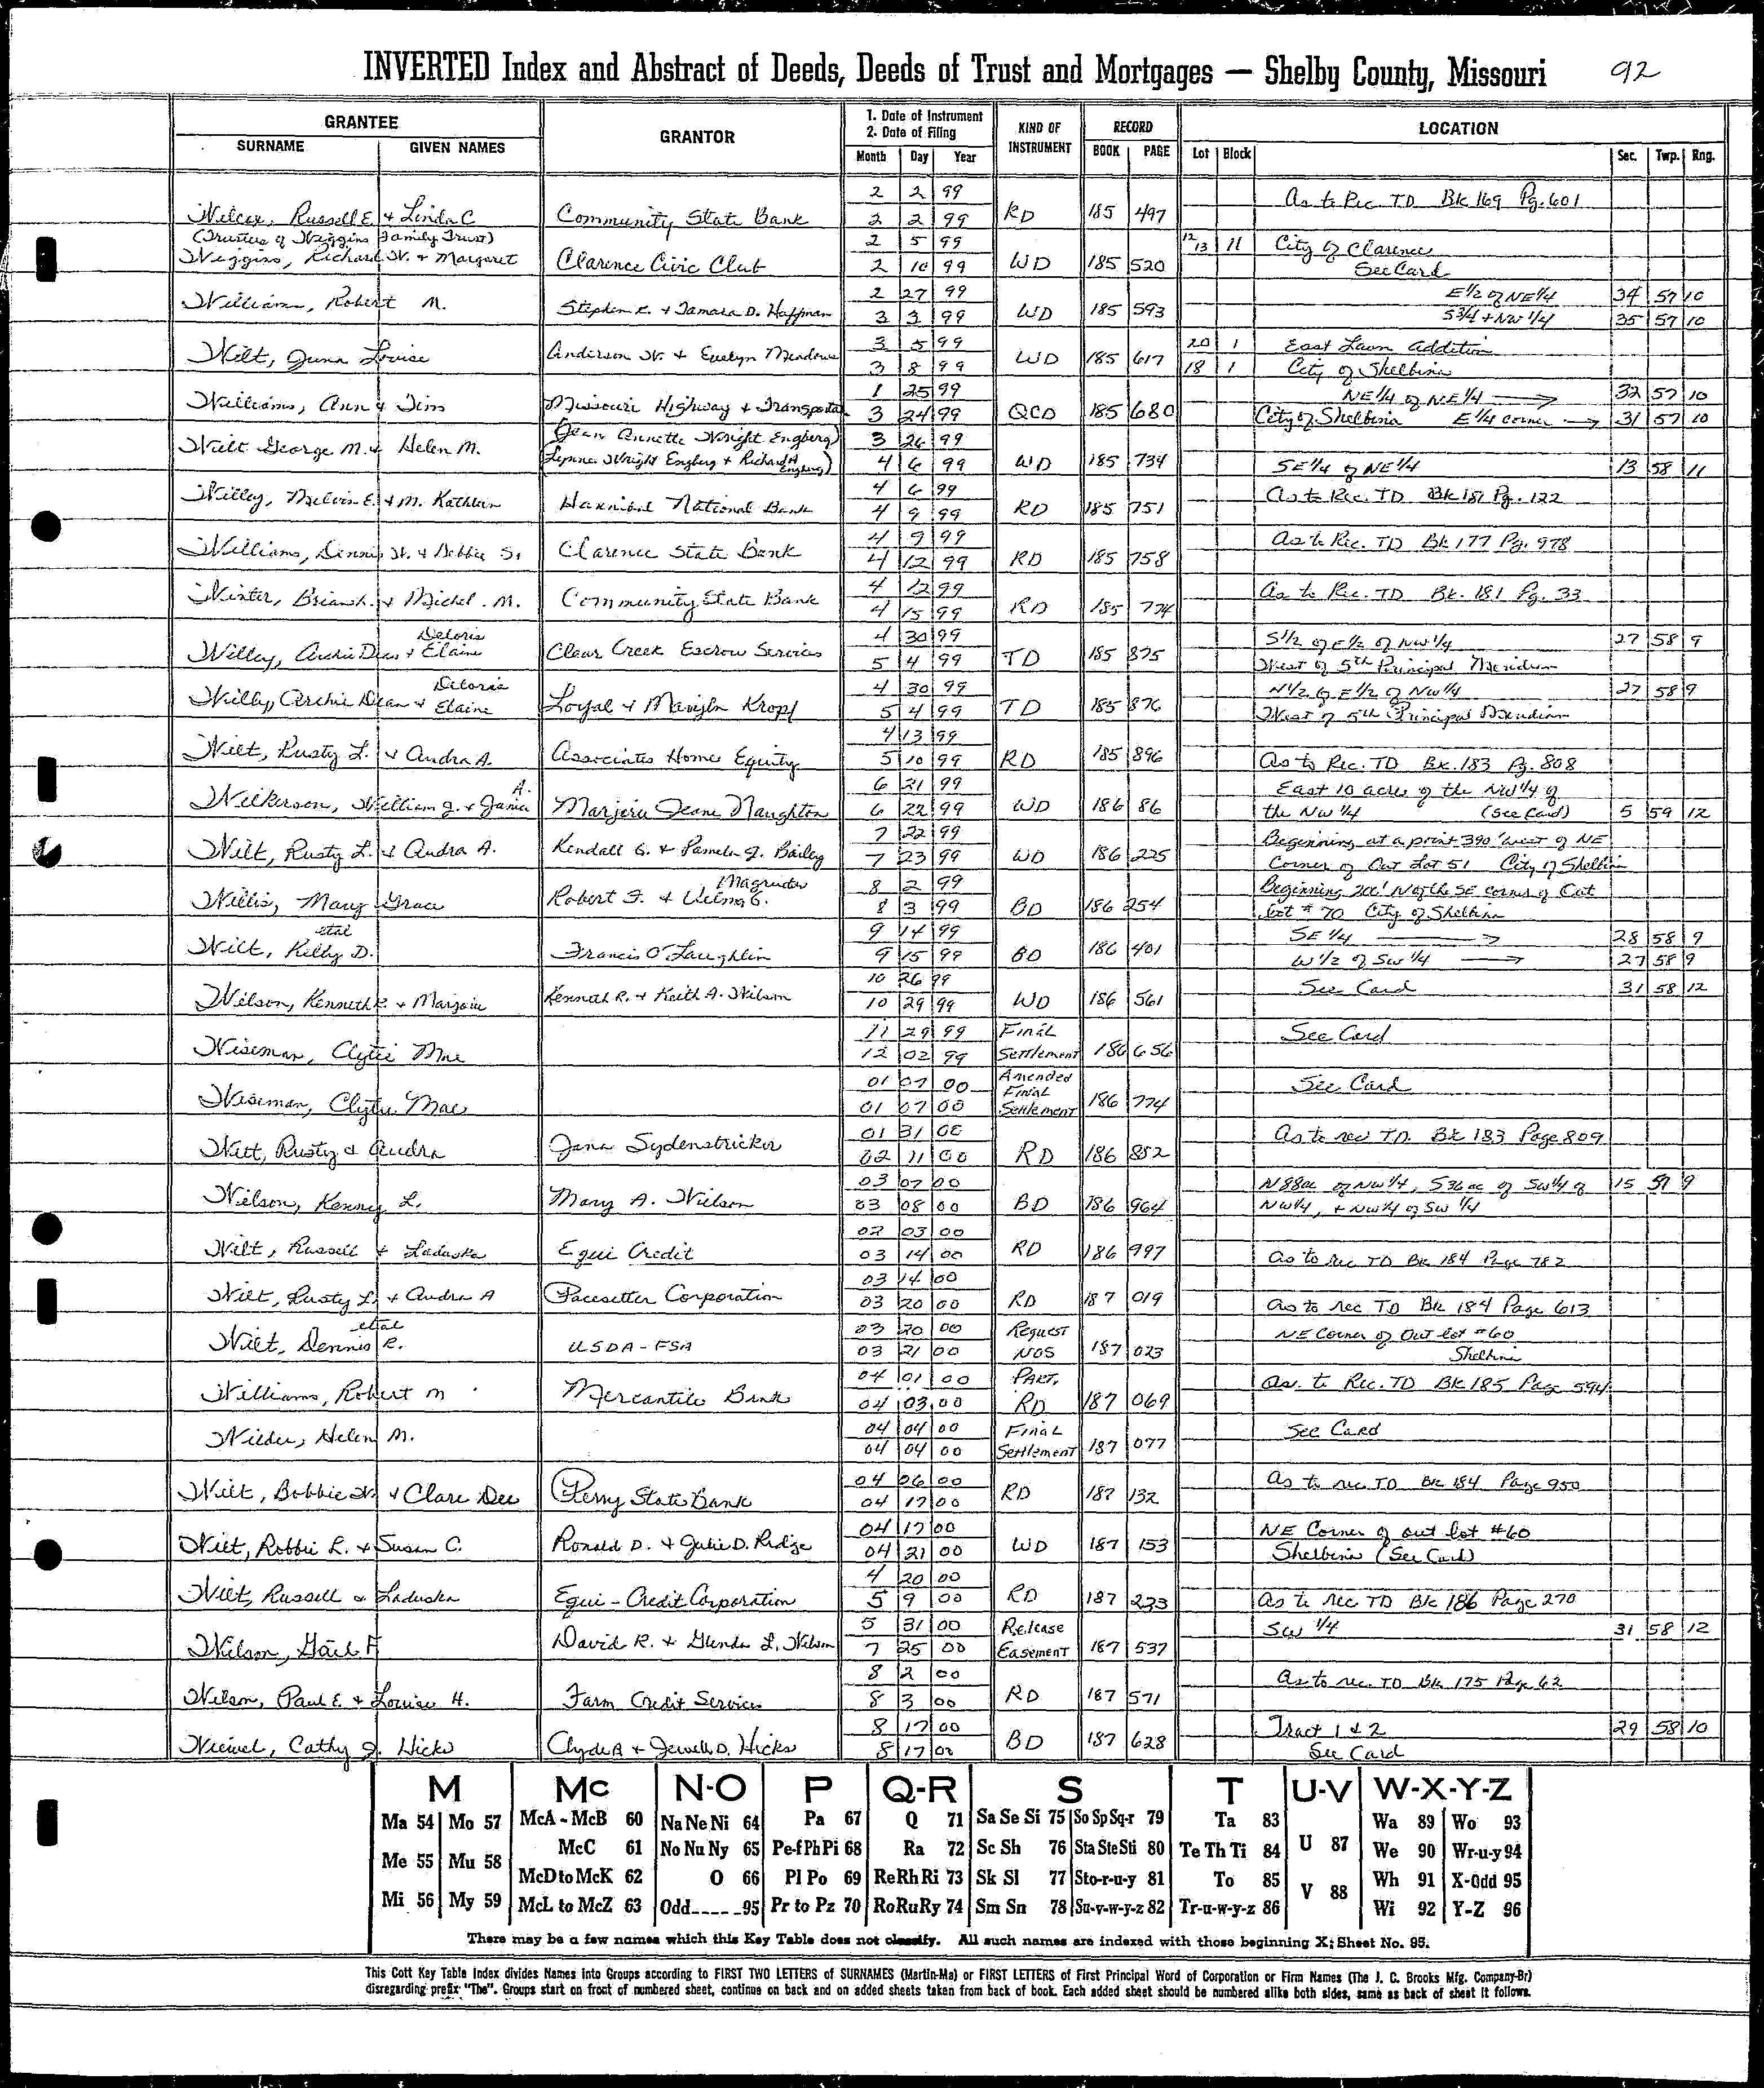 INVERTED Index and Abstract of Deeds, Deeds of Trust and Mortgages — Shelby County, Missouri 92
GRANTEE GRANTOR 1. Date of Instrument 2. Date of Filing KIND OF INSTRUMENT RECORD LOCATION
SURNAME GIVEN NAMES Month Day Year BOOK PAGE Lot Block Sec. Twp. Rng.
2 2 99 As to Rec TD Bk 169 Pg. 601
Wilcox, Russell E. & Linda C Community State Bank 2 2 99 RD 185 497
(Trustees of Wiggins Family Trust) 2 5 99 12 13 11 City of Clarence
Wiggins, Richard W. & Margaret Clarence Civic Club 2 10 99 WD 185 520 See Card
Williams, Robert M. 2 27 99 E 1/2 of NE 1/4 34 57 10
Stephen R. & Tamara D. Hoffman 3 3 99 WD 185 593 S 3/4 + NW 1/4 35 57 10
Wilt, Juna Louise Anderson W. & Evelyn Meadows 3 5 99 20 1 East Lawn Addition
3 8 99 WD 185 617 18 1 City of Shelbina
1 25 99 NE 1/4 of NE 1/4 → 32 57 10
Williams, Ann & Jim Missouri Highway & Transportat 3 24 99 QCD 185 680 City of Shelbina E 1/4 corner → 31 57 10
Wilt George M. & Helen M. (Jean Annette Wright Engberg) 3 26 99
(Lynne Wright Engberg & Richard A Engberg) 4 6 99 WD 185 734 SE 1/4 of NE 1/4 13 58 11
Willey, Melvin E. & M. Kathleen 4 6 99 As to Rec. TD Bk 181 Pg. 122
Hannibal National Bank 4 9 99 RD 185 751
Williams, Dennis W. & Debbie S. Clarence State Bank 4 9 99 As to Rec. TD Bk 177 Pg. 978
4 12 99 RD 185 758
Winter, Brian & Michel. M. Community State Bank 4 12 99 As to Rec. TD Bk. 181 Pg. 33
4 15 99 RD 185 774
Deloris 4 30 99 S 1/2 of E 1/2 of NW 1/4 27 58 9
Willey, Archie Dean & Elaine Clear Creek Escrow Services 5 4 99 TD 185 875 West of 5th Principal Meridian
Deloris 4 30 99 N 1/2 of E 1/2 of NW 1/4 27 58 9
Willey, Archie Dean & Elaine Loyal & Marilyn Kropf 5 4 99 TD 185 876 West of 5th Principal Meridian
4 13 99
Wilt, Rusty L. & Audra A. Associates Home Equity 5 10 99 RD 185 896 As to Rec. TD Bk. 183 Pg. 808
A. 6 21 99 East 10 acres of the NW 1/4 of
Wilkerson, William J. & Janice Marjorie Jeane Naughton 6 22 99 WD 186 86 the NW 1/4 (See Card) 5 59 12
7 22 99 Beginning at a point 390' west of NE
Wilt, Rusty L. & Audra A. Kendall G. & Pamela J. Bailey 7 23 99 WD 186 225 Corner of Out Lot 51 City of Shelbina
Magruder 8 2 99 Beginning 200' N of the SE corner of Out
Willis, Mary Grace Robert F. & Velma G. 8 3 99 BD 186 254 Lot # 70 City of Shelbina
etal 9 14 99 SE 1/4 → 28 58 9
Wilt, Kelly D. Francis O'Laughlin 9 15 99 BD 186 401 W 1/2 of SW 1/4 → 27 58 9
10 26 99 See Card 31 58 12
Wilson, Kenneth R. & Marjorie Kenneth R. & Keith A. Wilson 10 29 99 WD 186 561
11 29 99 Final See Card
Wiseman, Clytie Mae 12 02 99 Settlement 186 656
01 07 00 Amended Final See Card
Wiseman, Clytie Mae 01 07 00 Settlement 186 774
01 31 00 As to rec TD. Bk 183 Page 809
Wilt, Rusty & Audra Jana Sydenstricker 02 11 00 RD 186 852
03 07 00 N 88ac of NW 1/4, S 36 ac of SW 1/4 of 15 57 9
Wilson, Kenny L. Mary A. Wilson 03 08 00 BD 186 964 NW 1/4, + NW 1/4 of SW 1/4
02 03 00
Wilt, Russell & Laduska Equi Credit 03 14 00 RD 186 997 As to rec TD Bk 184 Page 782
03 14 00
Wilt, Rusty L. & Audra A Pacesetter Corporation 03 20 00 RD 187 019 As to rec TD Bk 184 Page 613
etal 03 20 00 Request NE Corner of Out lot #60
Wilt, Dennis R. USDA-FSA 03 21 00 NOS 187 023 Shelbina
04 01 00 Part. As to Rec. TD Bk 185 Page 594
Williams, Robert M Mercantile Bank 04 03 00 RD 187 069
04 04 00 Final See Card
Wilder, Helen M. 04 04 00 Settlement 187 077
04 06 00 As to rec TD Bk 184 Page 950
Wilt, Bobbie W. & Clare Dee Perry State Bank 04 17 00 RD 187 132
04 17 00 NE Corner of out lot #60
Wilt, Robbie L. & Susan C. Ronald D. & Julie D. Ridge 04 21 00 WD 187 153 Shelbina (See Card)
4 20 00
Wilt, Russell & Laduska Equi-Credit Corporation 5 9 00 RD 187 233 As to rec TD Bk 186 Page 270
5 31 00 Release SW 1/4 31 58 12
Wilson, Gail F David R. & Glenda L. Wilson 7 25 00 Easement 187 537
8 2 00 As to rec. TD Bk 175 Page 62
Wilson, Paul E. & Louise H. Farm Credit Services 8 3 00 RD 187 571
8 17 00 Tract 1 & 2 29 58 10
Cathy J. Hicks Clyde A & Jewell D. Hicks 8 17 00 BD 187 628 See Card
M Mc N-O P Q-R S T U-V W-X-Y-Z
Ma 54 Mo 57 McA - McB 60 Na Ne Ni 64 Pa 67 Q 71 Sa Se Si 75 So Sp Sq-r 79 Ta 83 Wa 89 Wo 93
Me 55 Mu 58 McC 61 No Nu Ny 65 Pe-f Ph Pi 68 Ra 72 Sc Sh 76 Sta Ste Sti 80 Te Th Ti 84 U 87 We 90 Wr-u-y 94
McD to McK 62 O 66 Pl Po 69 Re Rh Ri 73 Sk Sl 77 Sto-r-u-y 81 To 85 V 88 Wh 91 X-Odd 95
Mi 56 My 59 McL to McZ 63 Odd-----95 Pr to Pz 70 Ro Ru Ry 74 Sm Sn 78 Su-v-w-y-z 82 Tr-u-w-y-z 86 Wi 92 Y-Z 96
There may be a few names which this Key Table does not classify. All such names are indexed with those beginning X; Sheet No. 95.
This Cott Key Table Index divides Names into Groups according to FIRST TWO LETTERS of SURNAMES (Martin-Ma) or FIRST LETTERS of First Principal Word of Corporation or Firm Names (The J. C. Brooks Mfg. Company-Br)
disregarding prefix "The". Groups start on front of numbered sheet, continue on back and on added sheets taken from back of book. Each added sheet should be numbered alike both sides, same as back of sheet it follows.